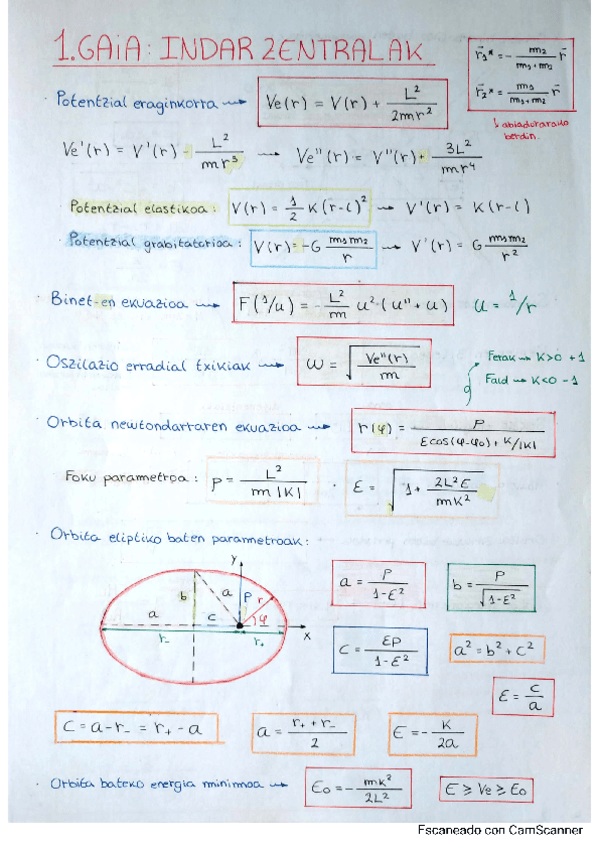 1.GAIA: INDAR ZENTRALAK
r⃗₁* = - m₂/(m₁+m₂) r⃗
r⃗₂* = m₁/(m₁+m₂) r⃗
abiadurarako berdin.
· Potentzial eraginkorra → Ve(r) = V(r) + L²/2mr²
Ve'(r) = V'(r) - L²/mr³ → Ve''(r) = V''(r) + 3L²/mr⁴
· Potentzial elastikoa: V(r) = 1/2 K(r-l)² → V'(r) = K(r-l)
· Potentzial grabitatorioa: V(r) = -G m₁m₂/r → V'(r) = G m₁m₂/r²
· Binet-en ekuazioa → F(1/u) = - L²/m u²·(u''+u) u = 1/r
· Oszilazio erradial txikiak → ω = √(Ve''(r)/m)
Ferak → K>0 +1
Faid → K<0 -1
· Orbita newtondarraren ekuazioa → r(φ) = P/(Ɛcos(φ-φ₀)+K/|K|)
Foku parametroa: p = L²/m|K| · Ɛ = √(1 + 2L²E/mK²)
· Orbita eliptiko baten parametroak:
y
b a P r φ
a c x
r₋ r₊
a = P/(1-Ɛ²) b = P/√(1-Ɛ²)
c = ƐP/(1-Ɛ²) a² = b² + c²
Ɛ = c/a
C = a-r₋ = r₊-a a = (r₊+r₋)/2 E = - K/2a
· Orbita bateko energia minimoa → E₀ = - mk²/2L² E ≥ Ve ≥ E₀
Escaneado con CamScanner